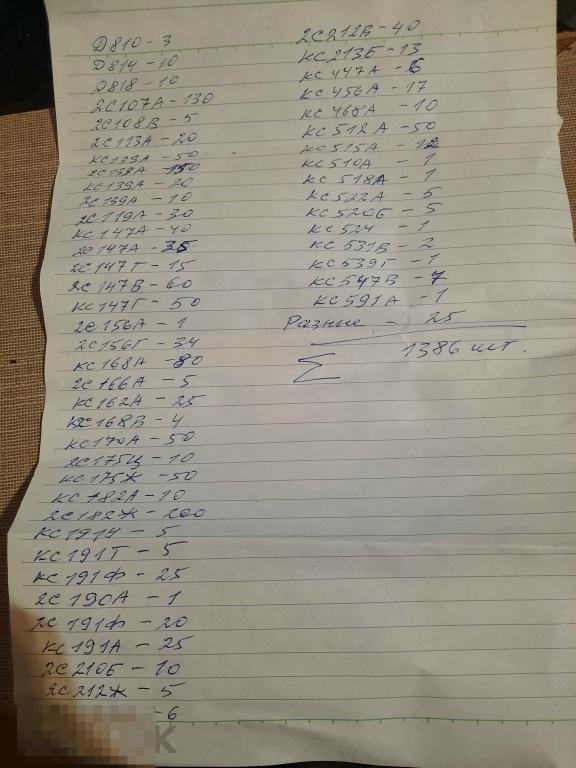 Д810 - 3
Д814 - 10
Д818 - 10
2С107А - 130
2С108В - 5
2С113А - 20
КС133А - 50
КС139А - 20
2С139А - 10
2С119А - 30
КС147А - 40
2С147А - 35
2С147Т - 15
2С147В - 60
КС147Г - 50
2С156А - 1
2С156Г - 34
КС168А - 80
2С166А - 5
КС162А - 25
КС168В - 4
КС170А - 50
2С175Ц - 10
КС175Ж - 50
КС182А - 10
2С182Ж - 200
КС191Ч - 5
КС191Т - 5
КС191Ф - 25
2С190А - 1
2С191Ф - 20
КС191А - 25
2С210Б - 10
2С212Ж - 5
- 6
2С212В - 40
КС213Б - 13
КС447А - 6
КС456А - 17
КС468А - 10
КС512А - 50
КС515А - 12
КС510А - 1
КС518А - 1
КС522А - 5
КС520Б - 5
КС524 - 1
КС531В - 2
КС539Г - 1
КС547В - 7
КС591А - 1
Разные - 25
Σ 1386 шт.